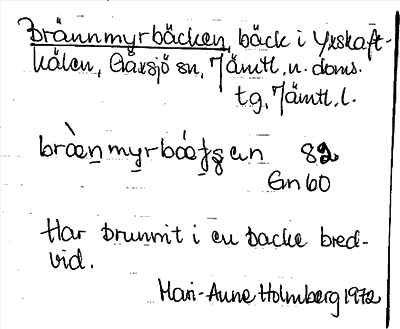 Brännmyrbäcken, bäck i Yxskaft-
kälen, Gåxsjö sn, Jämtl. n. doms.
tg, Jämtl. l.
82
Gn 60
Har brunnit i en backe bred-
vid.
Mari-Anne Holmberg 1972